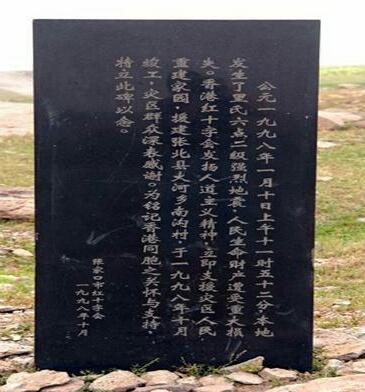 公元一九九八年一月十日上午十一时五十二分，本地
发生了里氏六点二级强烈地震，人民生命财产遭受重大损
失。香港红十字会发扬人道主义精神，立即支援灾区人民，
重建家园，援建张北县大河乡南沟村，于一九九八年十月
竣工，灾区群众深表感谢。为铭记香港同胞之关怀与支持，
特立此碑以念。
张家口市红十字会
一九九八年十月